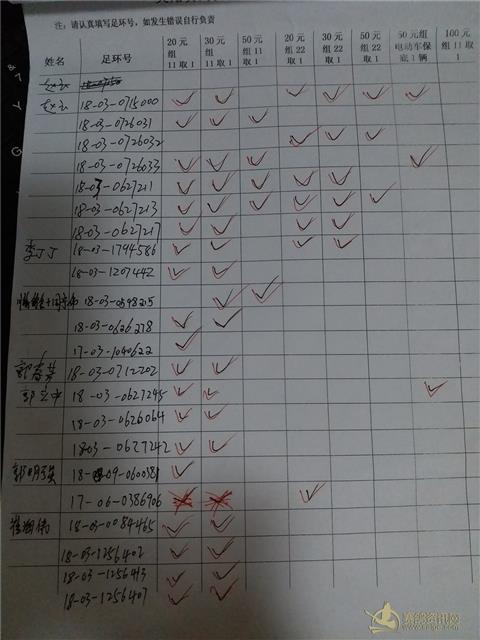 注：请认真填写足环号，如发生错误自行负责
姓名 足环号 20元组11取1 30元组11取1 50元组11取1 20元组22取1 30元组22取1 50元组22取1 50元组电动车保底1辆 100元组11取1
18-03-0715000
18-03-0726031
18-03-0726032
18-03-0726033
18-03-0627211
18-03-0627213
18-03-0627217
李丁丁 18-03-1794586
18-03-1207442
18-03-0598215
18-03-0626278
17-03-1040622
郭春芳 18-03-0712202
郭立中 18-03-0627245
18-03-0626064
18-03-0627242
18-09-0600381
17-06-0386906
18-03-0084465
18-03-1256402
18-03-1256413
18-03-1256407
赛鸽资讯网